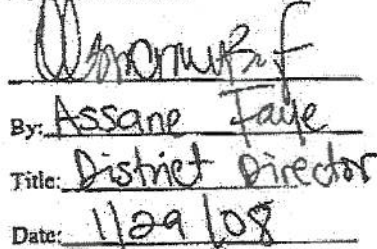 By: Assane Faye
Title: District Director
Date: 1/29/08